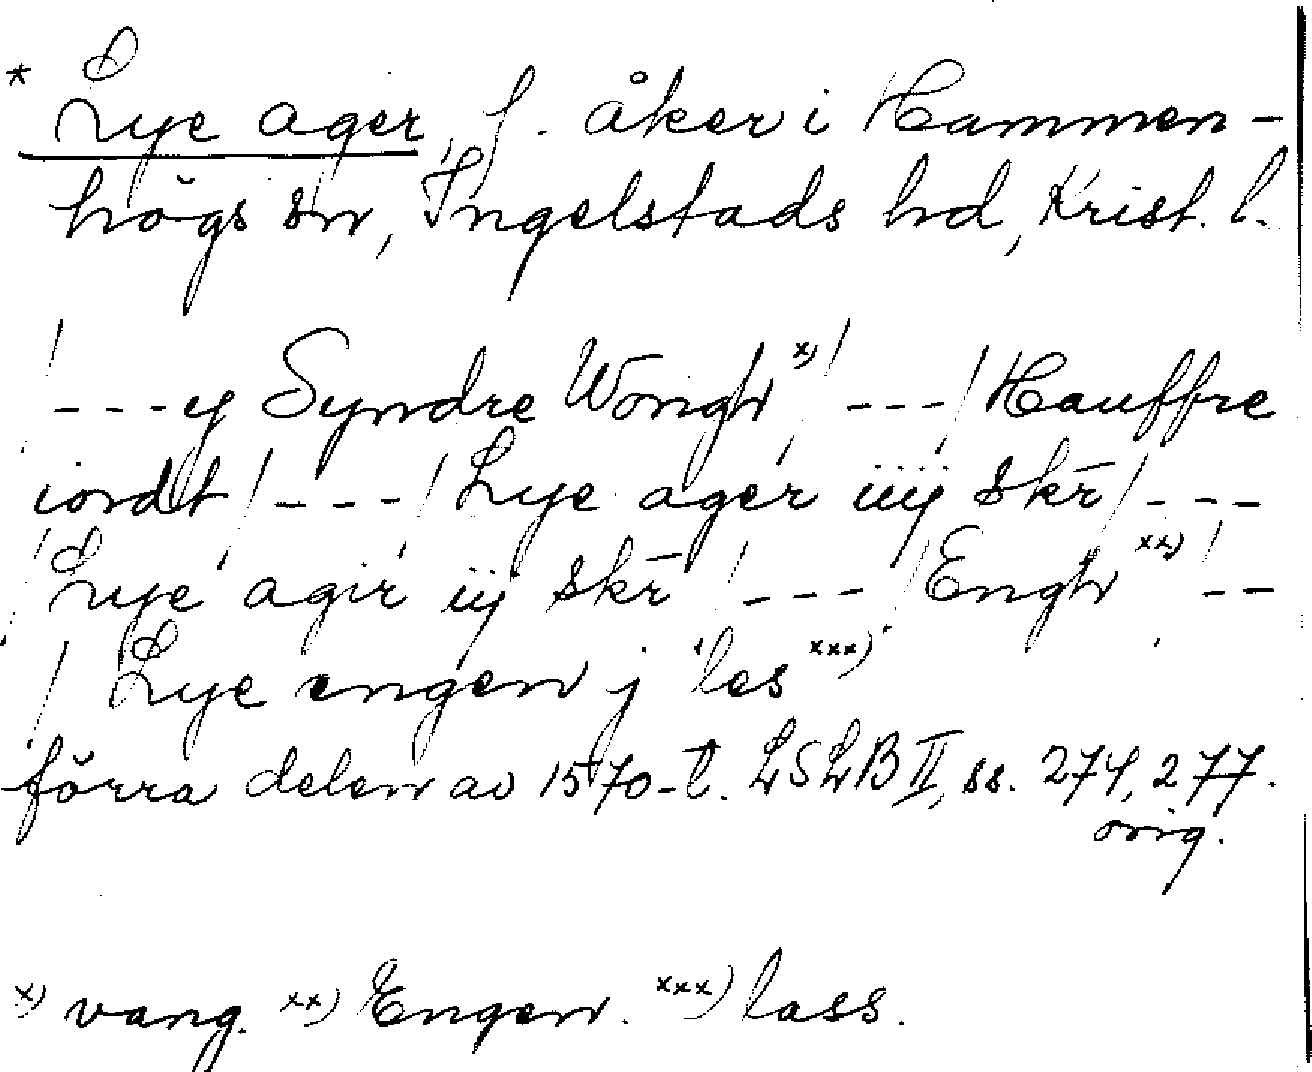 * Lye ager, f. åker i Hammen-
högs sn, Ingelstads hd, Krist. l.
/ ---y Syndre Wongh x) / --- / Hauffre
iordt / --- / Lye ager iiij skr̄ / ---
/ Lye agir iij skr̄ / --- / Engh xx) / --
/ Lye engen j les xxx)
förra delen av 1570-t. LSLB II, ss. 274, 277.
orig.
x) vang. xx) Engen. xxx) lass.